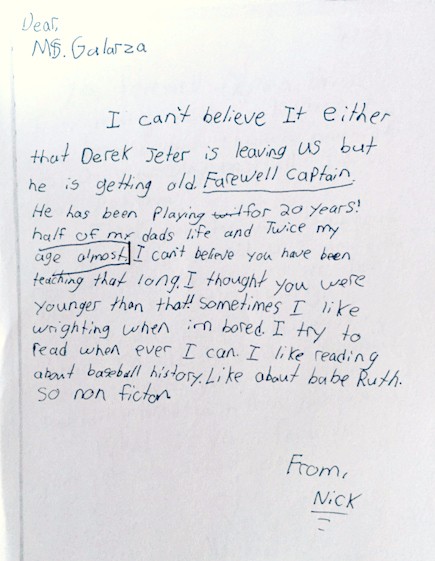 Dear,
MS. Galarza
I can't believe It either
that Derek Jeter is leaving us but
he is getting old. Farewell Captain.
He has been Playing for 20 years!
half of my dads life and Twice my
age almost. I can't believe you have been
teaching that long. I thought you were
younger than that! sometimes I like
wrighting when im bored. I try to
read when ever I can. I like reading
about baseball history. Like about babe Ruth.
so non ficton
From,
Nick